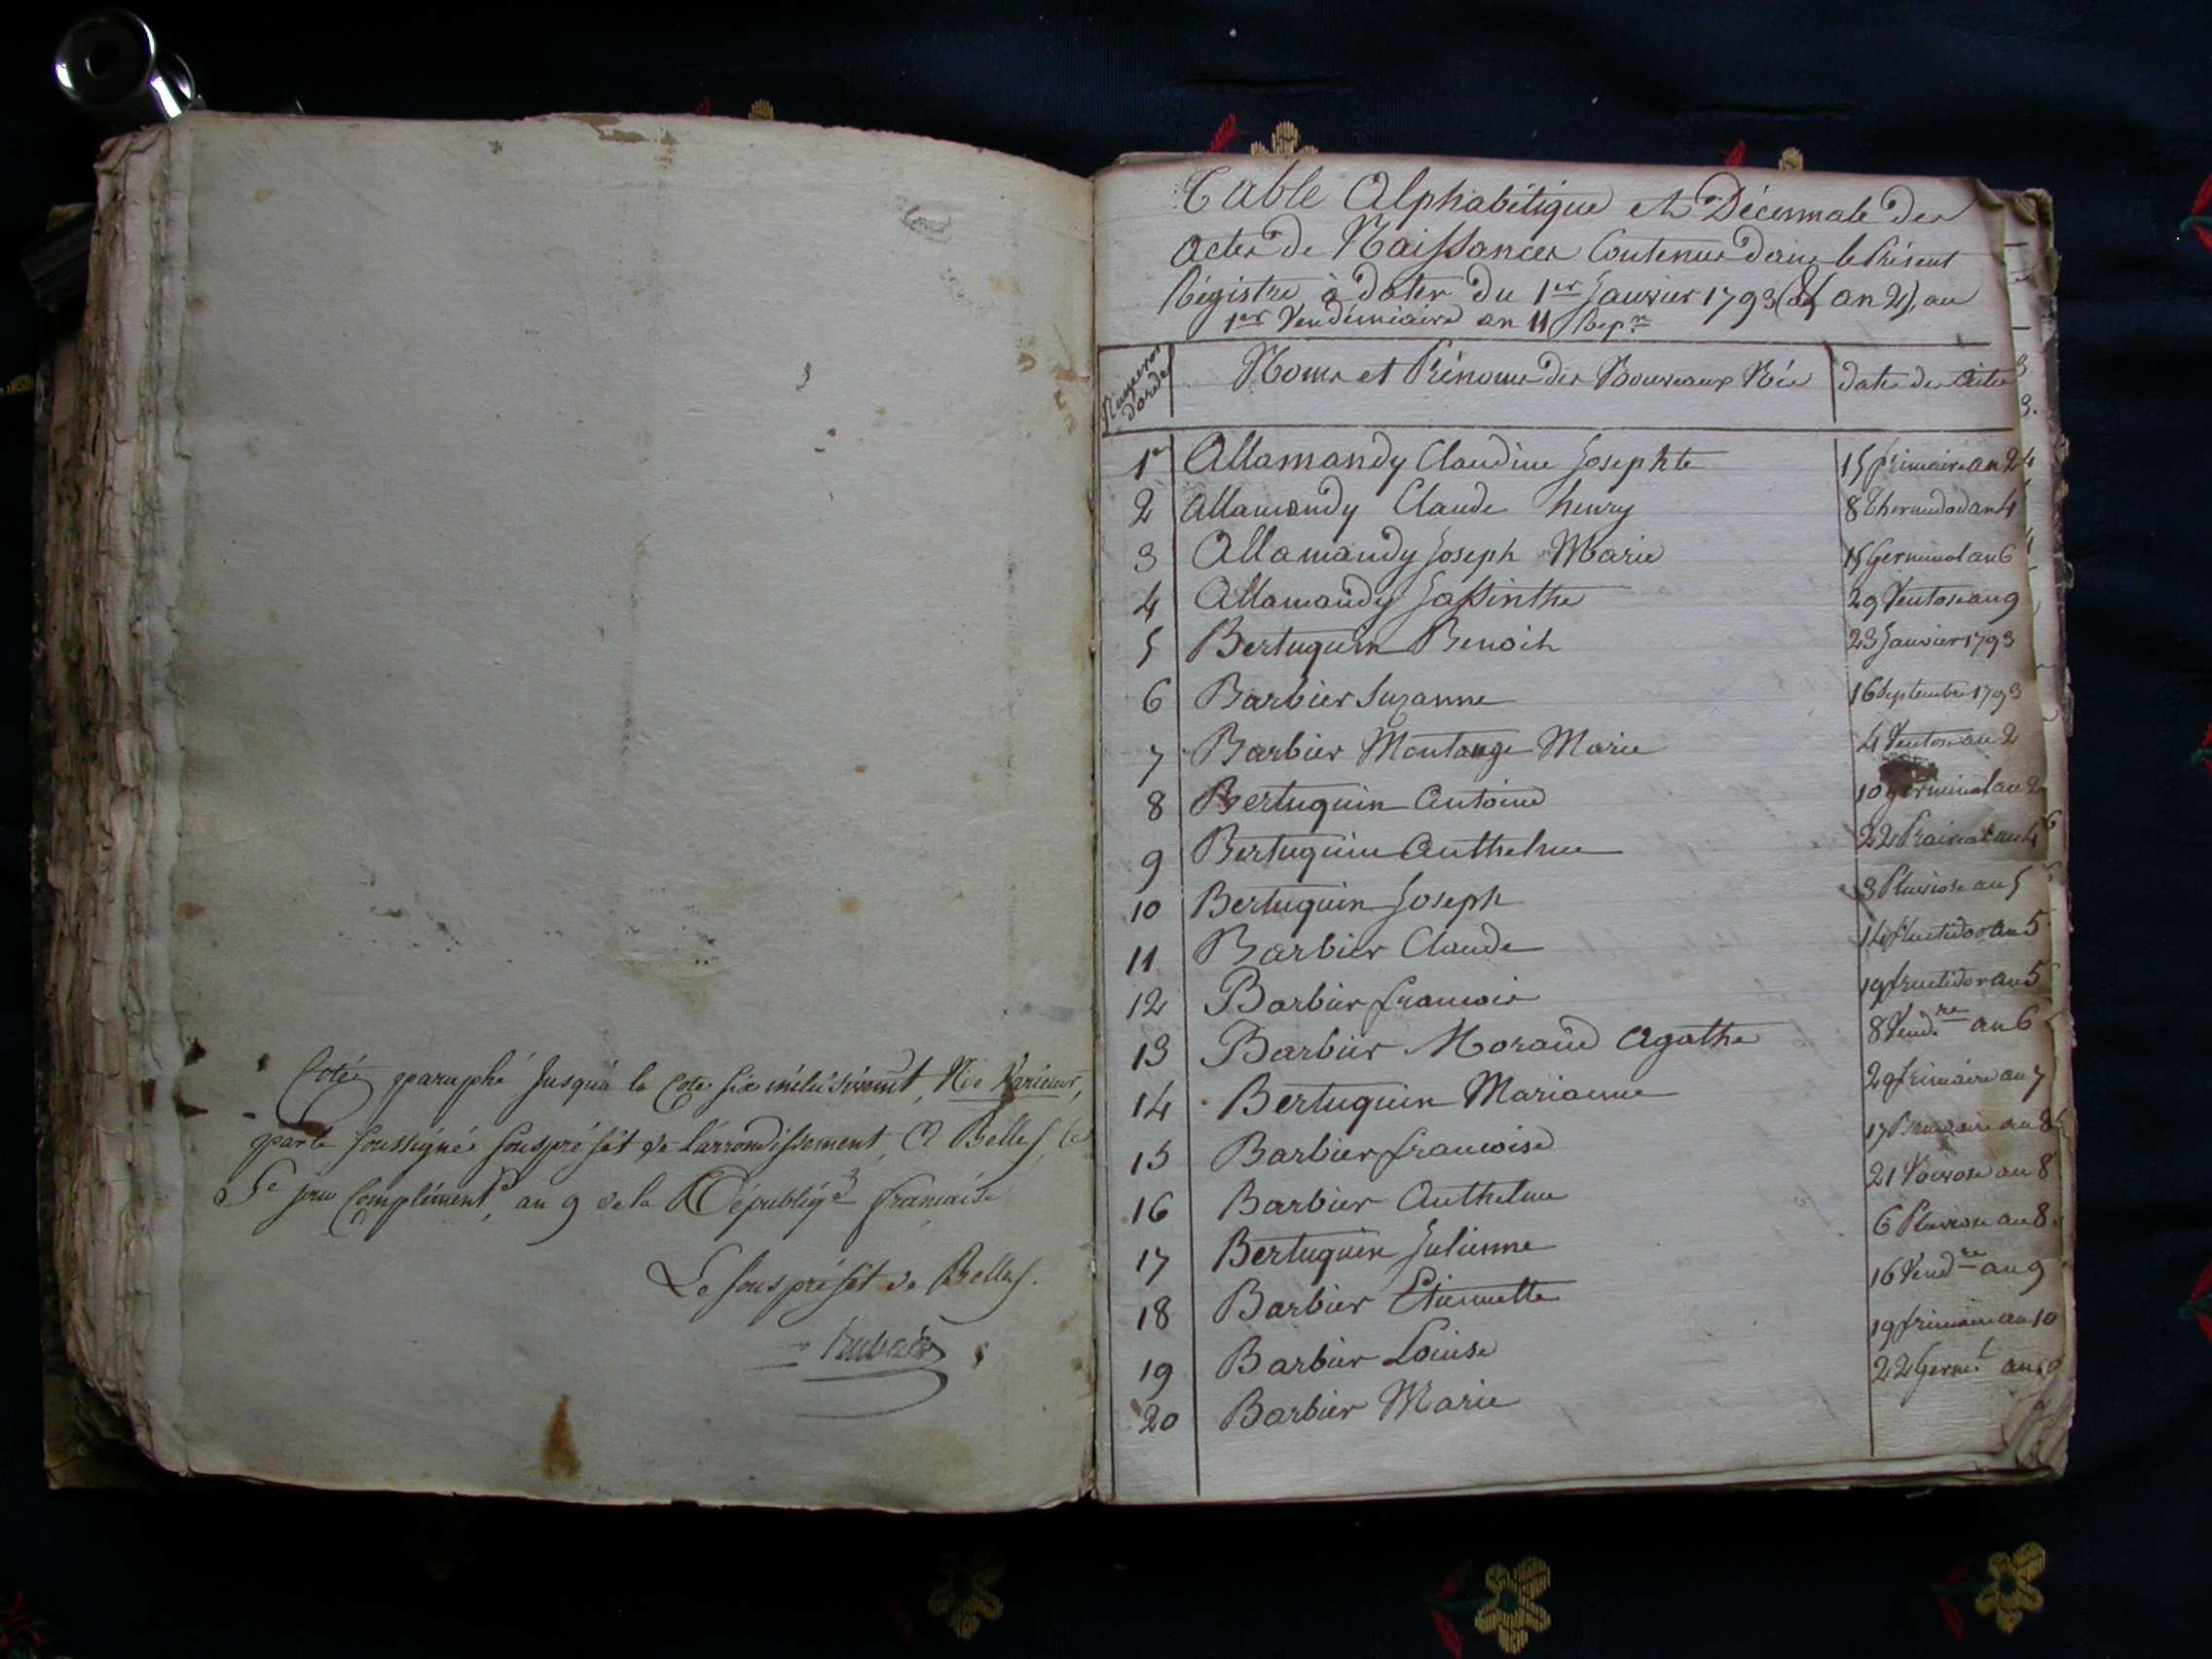 Coté paraphé Jusqu'à la Cote six inclusivemt,
par le soussigné souspréfét de L'arrondissement, A Belley, Le
5e jour Complément, an 9 de la Républiqe française
Le souspréfét de Belley.
Table Alphabétique et Décennale des
Actes de Naissances Contenus dans le Présent
Régistre à dater du 1er Janvier 1793 (an 2), au
1er Vendémiaire an 11 Rep.n
Numeros d'ordre
Noms et Prénoms des Nouveaux Nés
date des actes
1er Allamandy Claudine Josephte 15 frimaire an 2
2 Allamandy Claude henry 8 thermidod an 4
3 Allamandy Joseph Marie 15 Germinal an 6
4 Allamandy Jassinthe 29 Ventose an 9
5 Bertuquin Benoit 23 Janvier 1793
6 Barbier Suzanne 16 Septembre 1793
7 Barbier Montange Marie 4 Ventose an 2
8 Bertuquin Antoine 10 germinal an 2
9 Bertuquin Anthelme 22 Prairial an 4
10 Bertuquin Joseph 3 Pluviose an 5
11 Barbier Claude 14 fructidor an 5
12 Barbier francois 19 fructidor an 5
13 Barbier Morand Agathe 8 Vend.re an 6
14 Bertuquin Marianne 29 frimaire an 7
15 Barbier francoise 17 Brumaire an 8
16 Barbier Anthelme 21 Nivose an 8
17 Bertuquin Julienne 6 Pluviose an 8
18 Barbier Etiennette 16 Vend.re an 9
19 Barbier Louise 19 frimaire an 10
20 Barbier Marie 22 Germ.l an 10